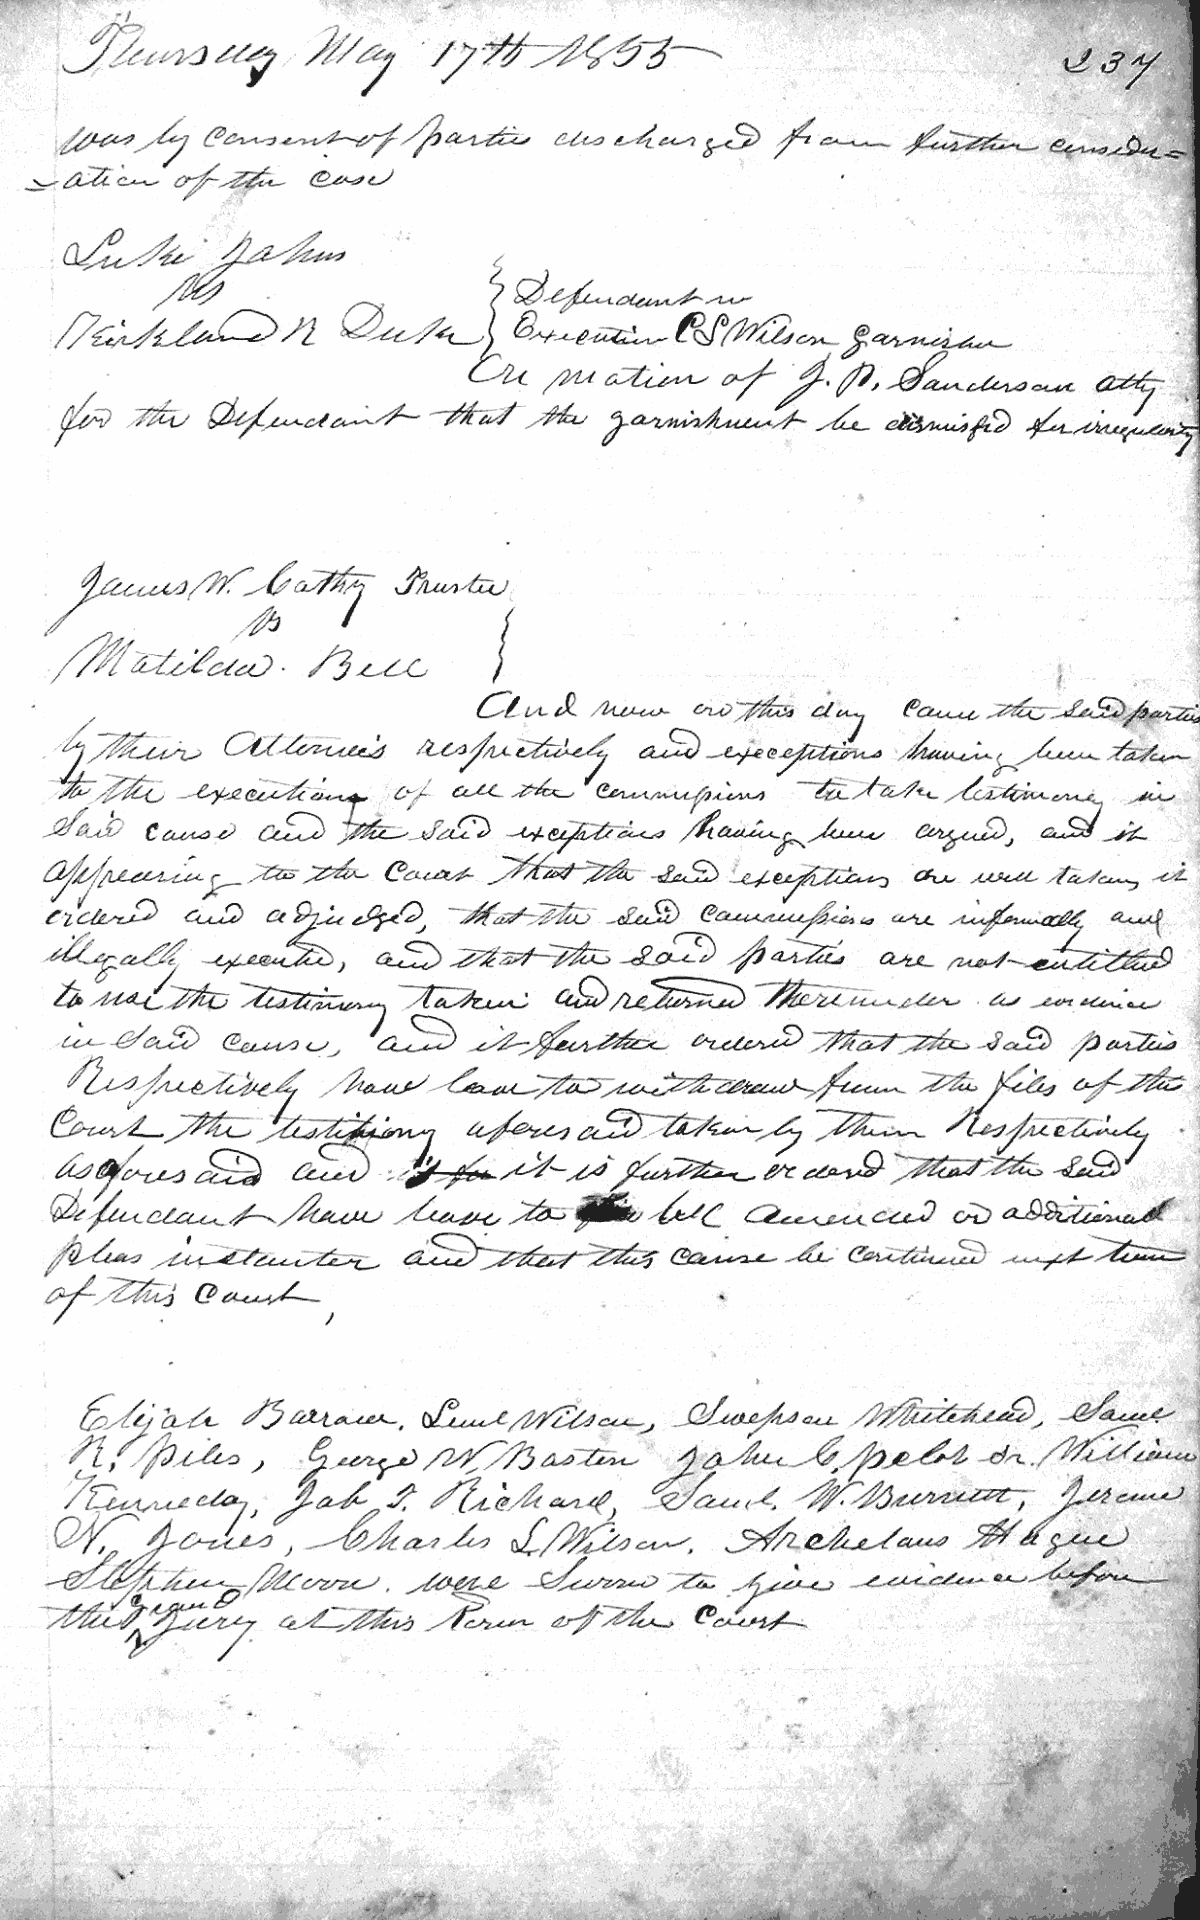 Thursday May 17th 1855
237
was by consent of parties discharged from further consider=
=ation of the case
Luke Johns
vs
Kirkland R Duke
Defendant in
Execution C S Wilson garnisee
On motion of J. P. Sanderson atty
for the Defendant that the garnishment be dismissed for irregularity
James W. Cathy Trustee
vs
Matilda Bell
And now on this day came the said parties
by their Attornies respectively and exceptions having been taken
to the executions of all the commissions to take testimony in
said cause and the said exceptions having been argued, and it
appearing to the Court that the said exceptions are well taken, it
ordered and adjudged, that the said commissions are informally and
illegally executed, and that the said parties are not entitled
to use the testimony taken and returned thereunder as evidence
in said cause, and it further ordered that the said parties
Respectively have leave to withdraw from the files of the
Court the testimony aforesaid taken by them Respectively
as aforesaid and it is further ordered that the said
Defendant have leave to amended or additional
pleas instanter and that this cause be continued next term
of this Court,
Elijah Barrow, Leml Wilson, Swepson Whitehead, Saml
R. Piles, George W Baston John C Pelot Sr. William
Kennedy, Job T. Richard, Saml. W. Burnett, Jerome
N. Jones, Charles L. Wilson, Archelaus Hague
Stephen Moore were Sworn to give evidence before
the Grand Jury at this Term of the Court